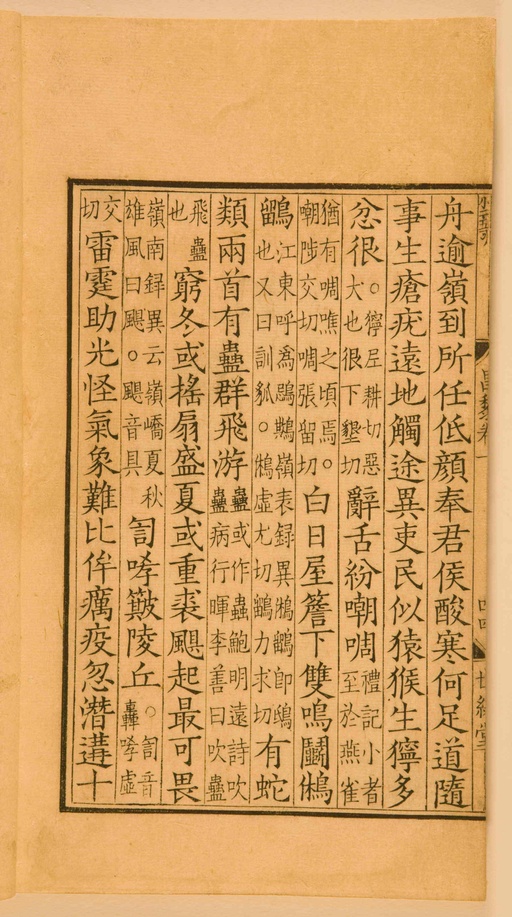 舟逾嶺到所任低顏奉君侯酸寒何足道隨
事生瘡疣遠地觸途異吏民似猿猴生獰多
忿很○獰尼耕切惡犬也很下墾切辭舌紛嘲啁禮記小者至於燕雀
猶有啁噍之頃焉○嘲陟交切啁張留切白日屋簷下雙鳴鬭鵂
鶹江東呼爲鵋鶀嶺表録異鵂鶹即鴟也又曰訓狐○鵂虛尤切鶹力求切有蛇
類兩首有蠱群飛游蠱或作蟲鮑明遠詩吹蠱病行暉李善曰吹蠱
飛蠱也窮冬或搖扇盛夏或重裘颶起最可畏
嶺南録異云嶺嶠夏秋雄風曰颶○颶音具訇哮簸陵丘○訇音轟哮虛
交切雷霆助光怪氣象難比侔癘疫忽潛遘十